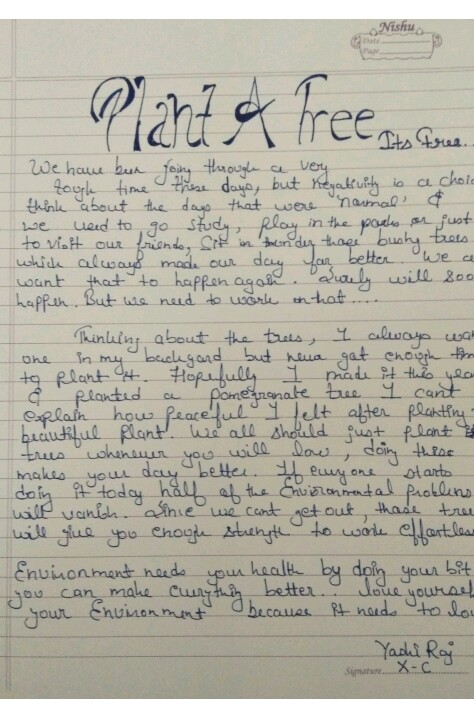 Nishu
Date
Page
Plant A Tree
Its Free..
We have been going through a very
tough time these days, but Negativity is a choic
think about the days that were 'normal' &
we used to go study, play in the parks or just
to visit our friends, Sit in under those bushy trees
which always made our day far better. We a
want that to happen again. Surely will soo
happen. But we need to work on that....
Thinking about the trees, I always wan
one in my backyard but never got enough tim
to plant it. Hopefully I made it this year
& planted a pomegranate tree I cant
explain how peaceful I felt after planting
beautiful Plant. We all should just plant
trees whenever you will low, doing these
makes your day better. If everyone starts
doing it today half of the Environmental problems
will vanish. Since we cant get out, these tree
will give you enough strength to work effortles
Environment needs your health by doing your bit
you can make everything better.. love yourself
your Environment because it needs to lov
Yashi Raj
Signature X-C